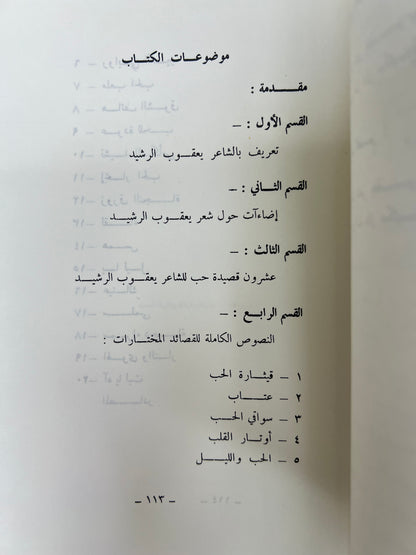 موضوعـات الكتـاب
مقـدمـة :
القسم الأول : –
تعريف بالشاعر يعقـوب الرشيد
القسم الثـاني : –
إضاءآت حول شعر يعقـوب الرشيـد
القسم الثالث : –
عشرون قصيدة حب للشاعر يعقوب الرشيـد
القسم الرابع : –
النصوص الكاملة للقصائد المختـارات :
١ – قيثـارة الحب
٢ – عتـاب
٣ – سواقي الحـب
٤ – أوتـار القلب
٥ – الحب والليـل
– ١١٣ –